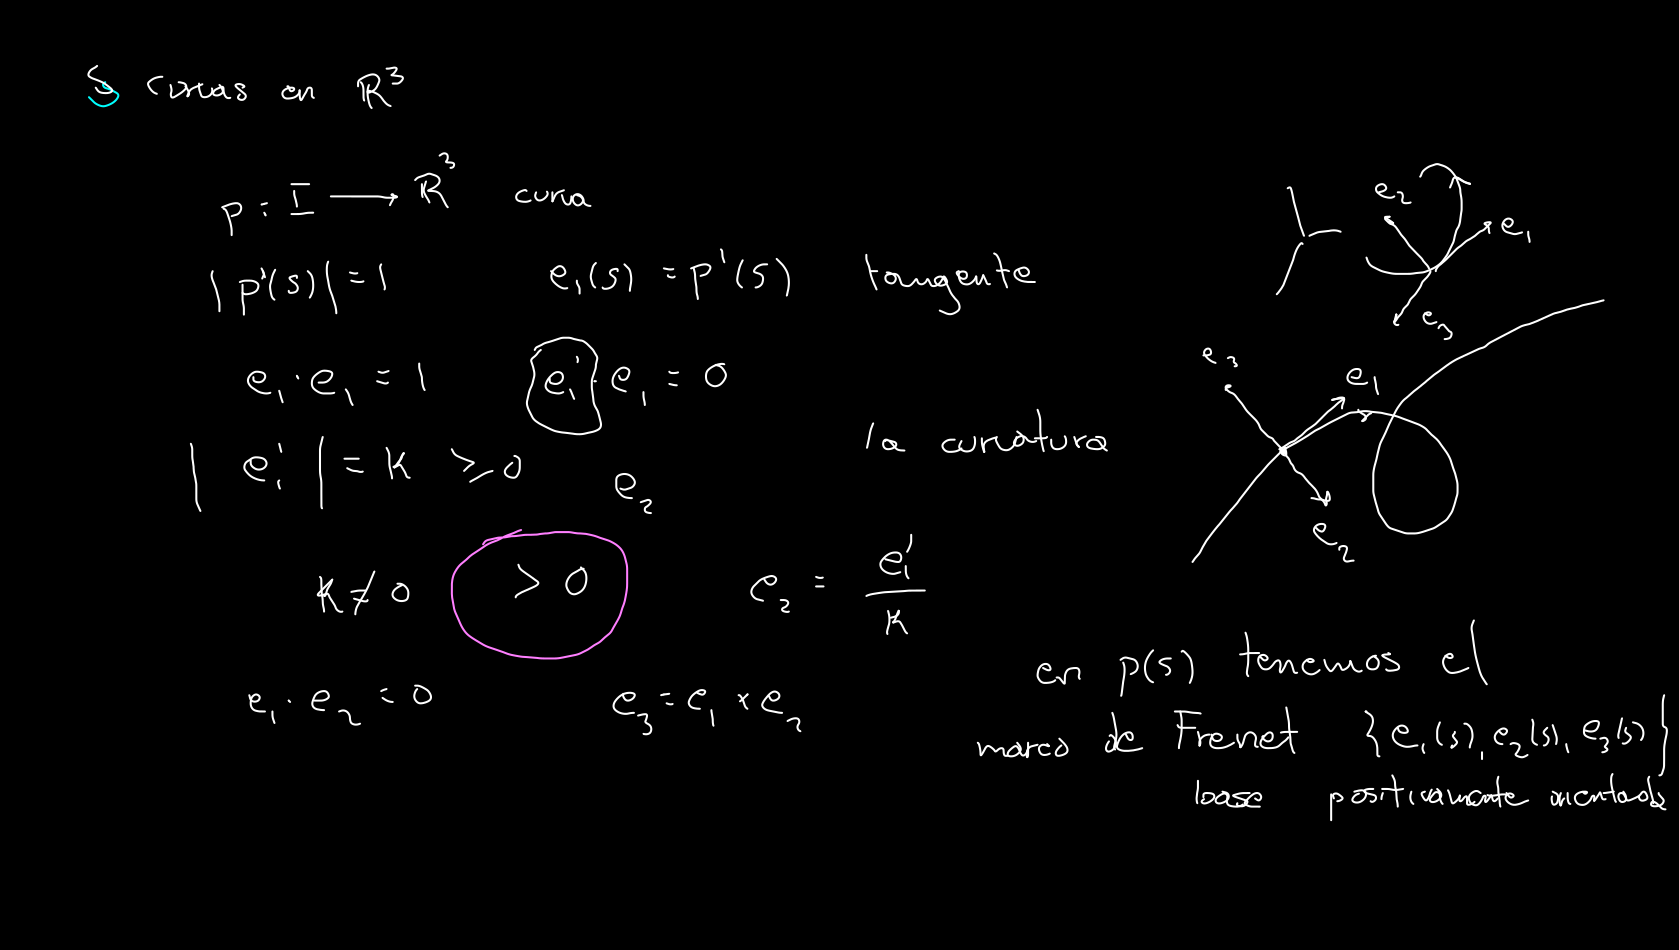 § curvas en ℝ³
p : I ⟶ ℝ³ curva
|p'(s)| = 1 e₁(s) = p'(s) tangente
e₁ · e₁ = 1 e₁' · e₁ = 0
la curvatura
|e₁'| = k ≥ 0 e₂
k ≠ 0 > 0 e₂ = e₁' / k
e₁ · e₂ = 0 e₃ = e₁ × e₂
e₂
e₁
e₃
e₃
e₁
e₂
en p(s) tenemos el
marco de Frenet {e₁(s), e₂(s), e₃(s)}
base positivamente orientada